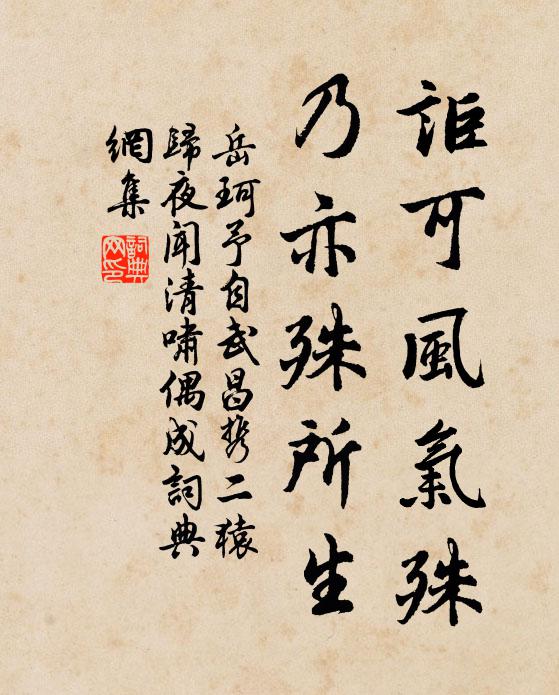 詎可風氣殊
乃亦殊所生
岳珂予自武昌携二猿
歸夜闻清嘯偶成詞典
網集
詞典
网印